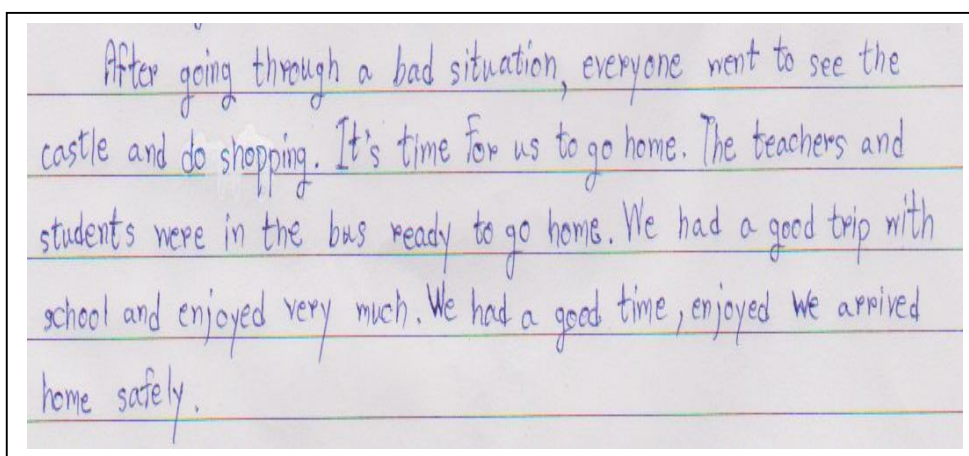 After going through a bad situation, everyone went to see the
castle and do shopping. It's time for us to go home. The teachers and
students were in the bus ready to go home. We had a good trip with
school and enjoyed very much. We had a good time, enjoyed we arrived
home safely.